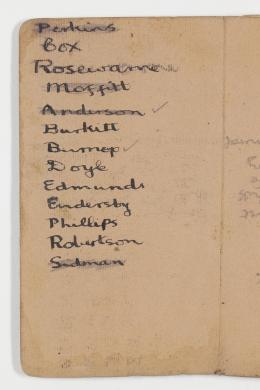 Perkins
Cox
Rosewarne
Moffitt
Anderson ✓
Burkett
Burnop ✓
Doyle
Edmunds
Endersby
Phillips
Robertson
Sidman